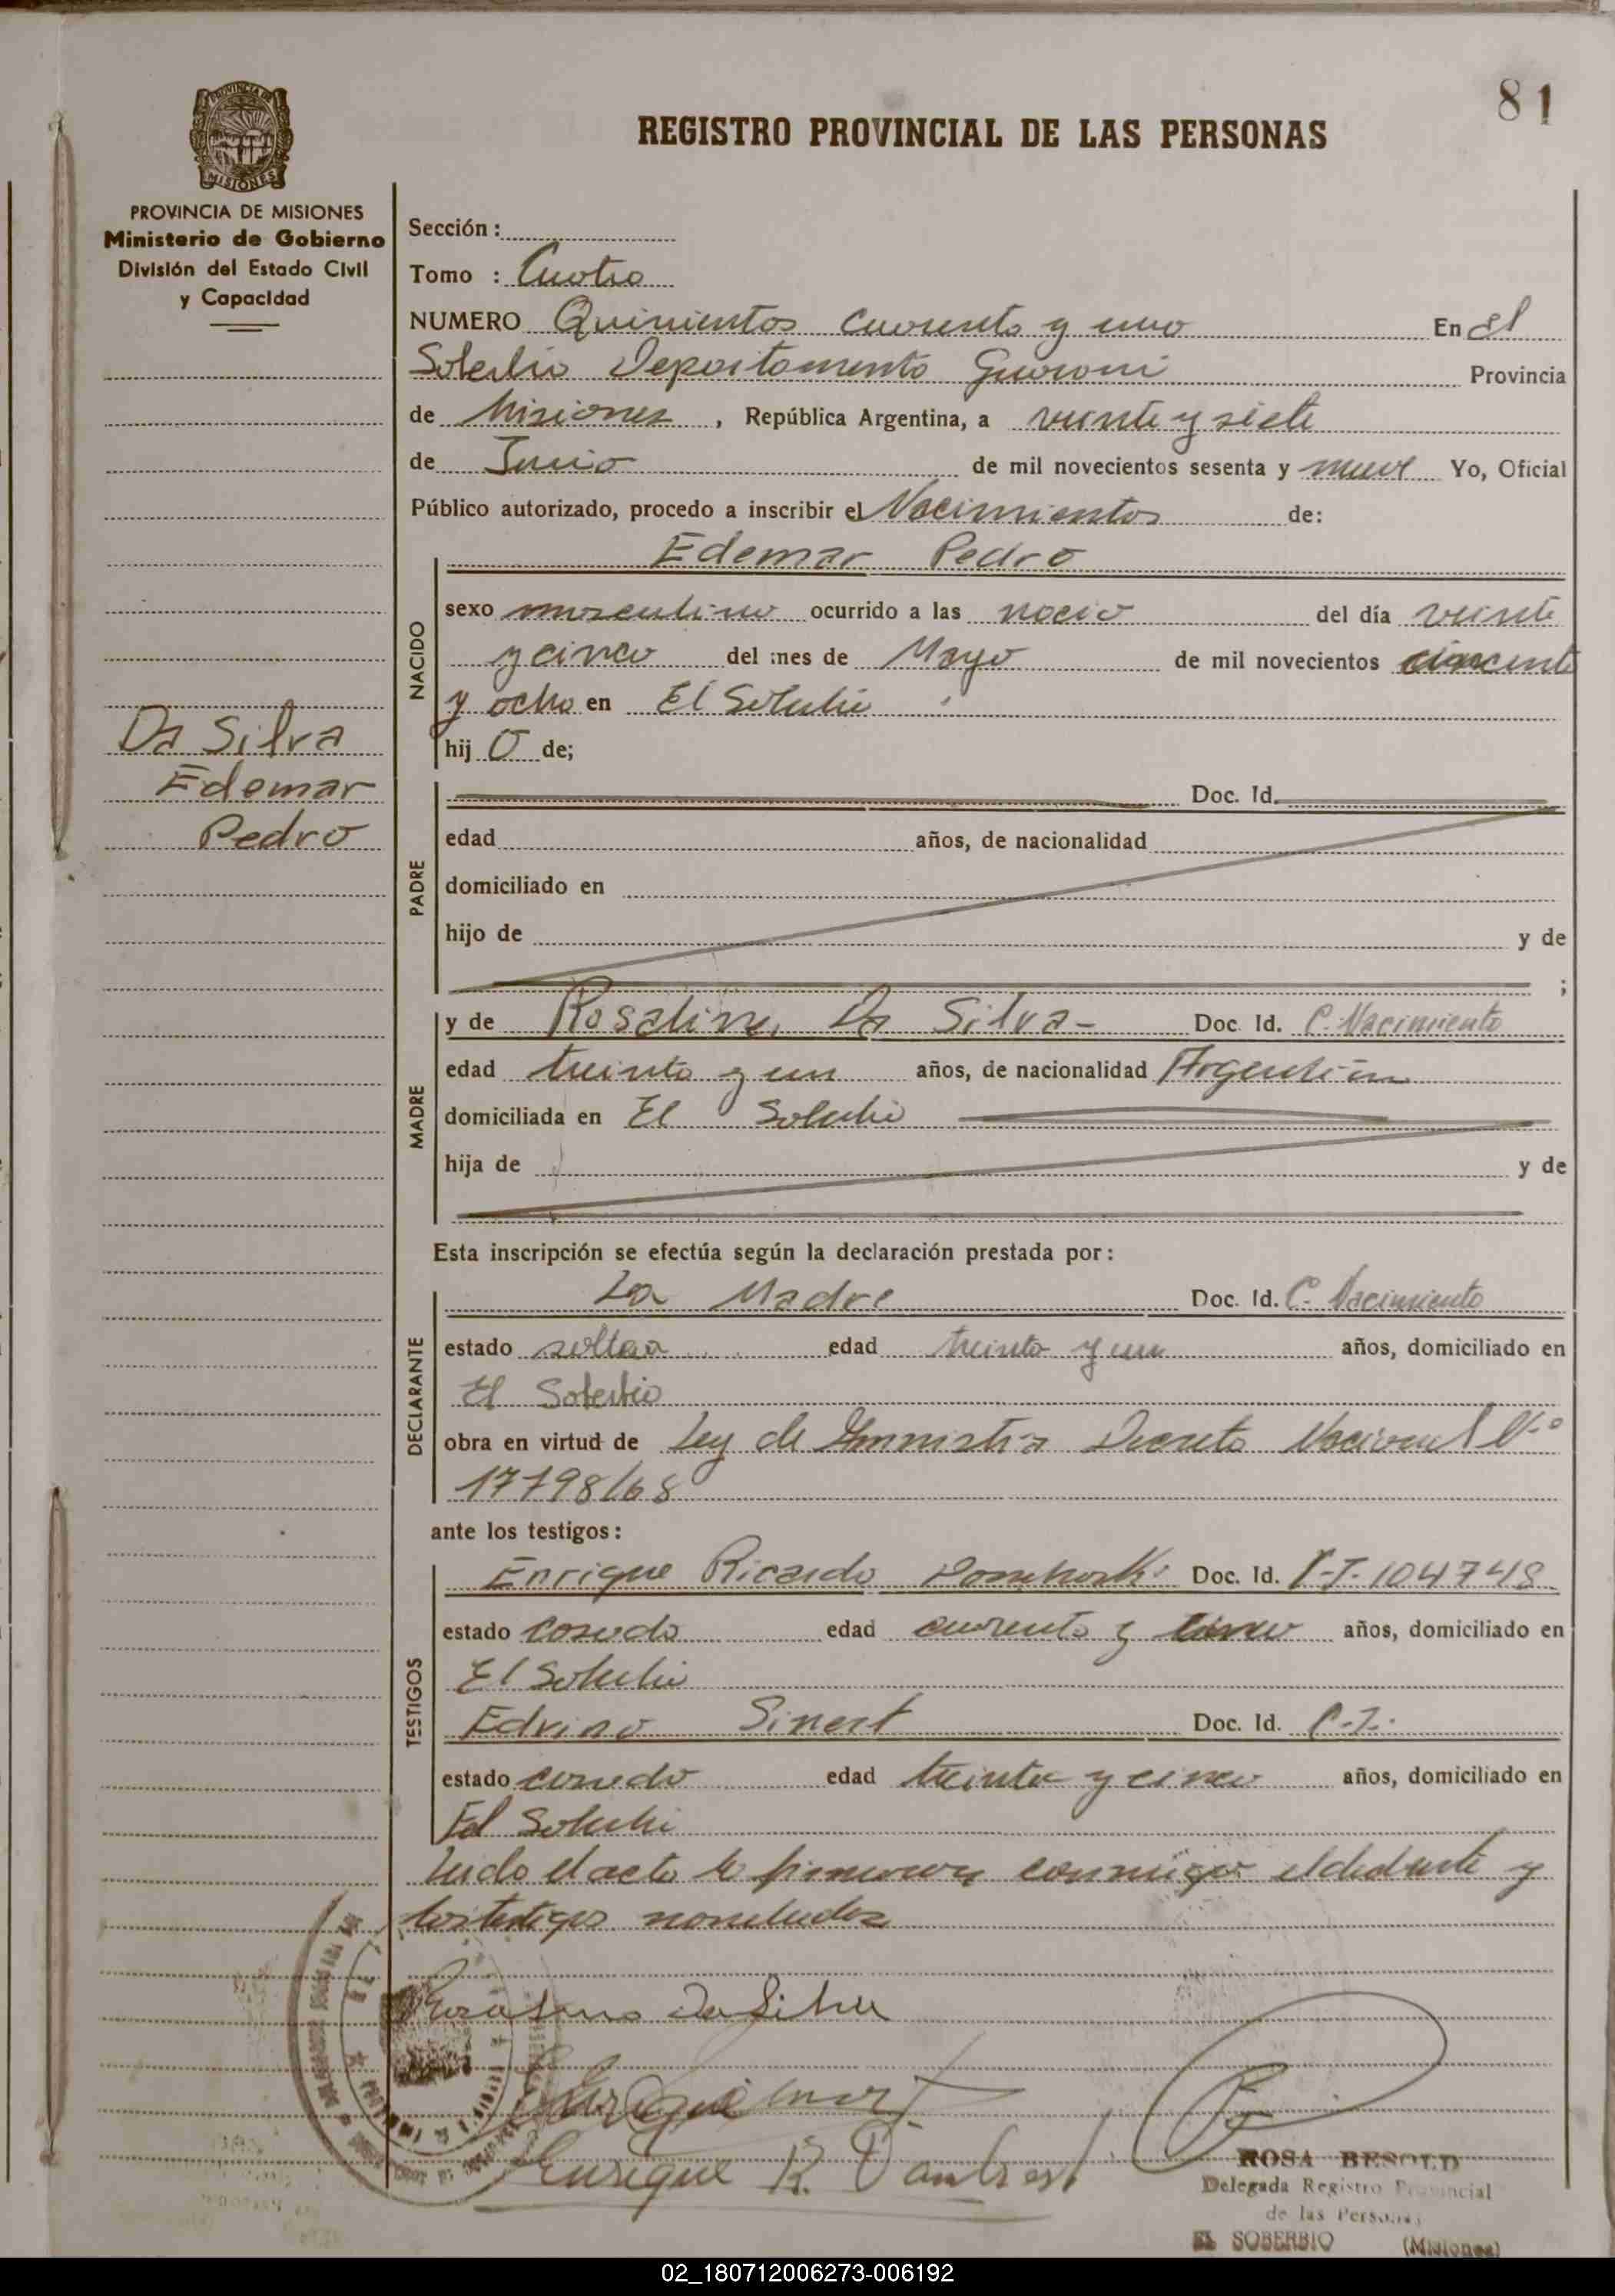 81
REGISTRO PROVINCIAL DE LAS PERSONAS
PROVINCIA DE MISIONES
Ministerio de Gobierno
División del Estado Civil
y Capacidad
Da Silva
Edemar
Pedro
Sección :
Tomo : Cuatro
NUMERO Quinientos cuarenta y uno En El
Soberbio Departamento Guarani Provincia
de Misiones , República Argentina, a veinte y siete
de Junio de mil novecientos sesenta y nueve Yo, Oficial
Público autorizado, procedo a inscribir el Nacimientos de:
Edemar Pedro
NACIDO
sexo masculino ocurrido a las nacio del día veinte
y cinco del mes de Mayo de mil novecientos cincuenta
y ocho en El Soberbio
hij O de;
PADRE
Doc. Id.
edad años, de nacionalidad
domiciliado en
hijo de y de
;
MADRE
y de Rosalina Da Silva - Doc. Id. C. Nacimiento
edad treinta y un años, de nacionalidad Argentina
domiciliada en El Soberbio
hija de y de
Esta inscripción se efectúa según la declaración prestada por :
DECLARANTE
La Madre Doc. Id. C. Nacimiento
estado edad treinta y un años, domiciliado en
El Soberbio
obra en virtud de Ley de Decreto Nacional Nº
17798/68
ante los testigos :
TESTIGOS
Enrique Ricardo Doc. Id. C-I- 1047748
estado casado edad cuarenta y años, domiciliado en
El Soberbio
Edvino Sinert Doc. Id. C-I-
estado casado edad treinta y cinco años, domiciliado en
El Soberbio
Leido el acta lo firmaron conmigo y
los testigos
Rosalina Da Silva
Enrique R.
ROSA BESOLD
Delegada Registro Provincial
de las Personas
EL SOBERBIO (Misiones)
02_180712006273-006192